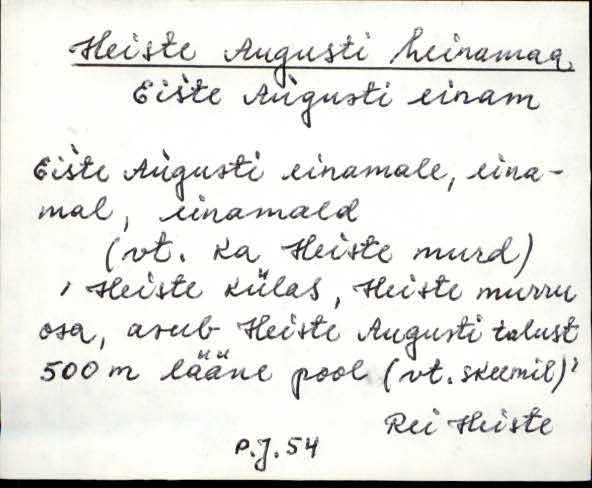 Heiste Augusti heinamaa
Eište Aùgusti einam
Eište Aùgusti einamale, eina-
mal, einamald
(vt. ka Heiste murd)
' Heiste külas, Heiste murru
osa, asub Heiste Augusti talust
500 m lääne pool (vt. skeemil)'
Rei Heiste
P.J. 54